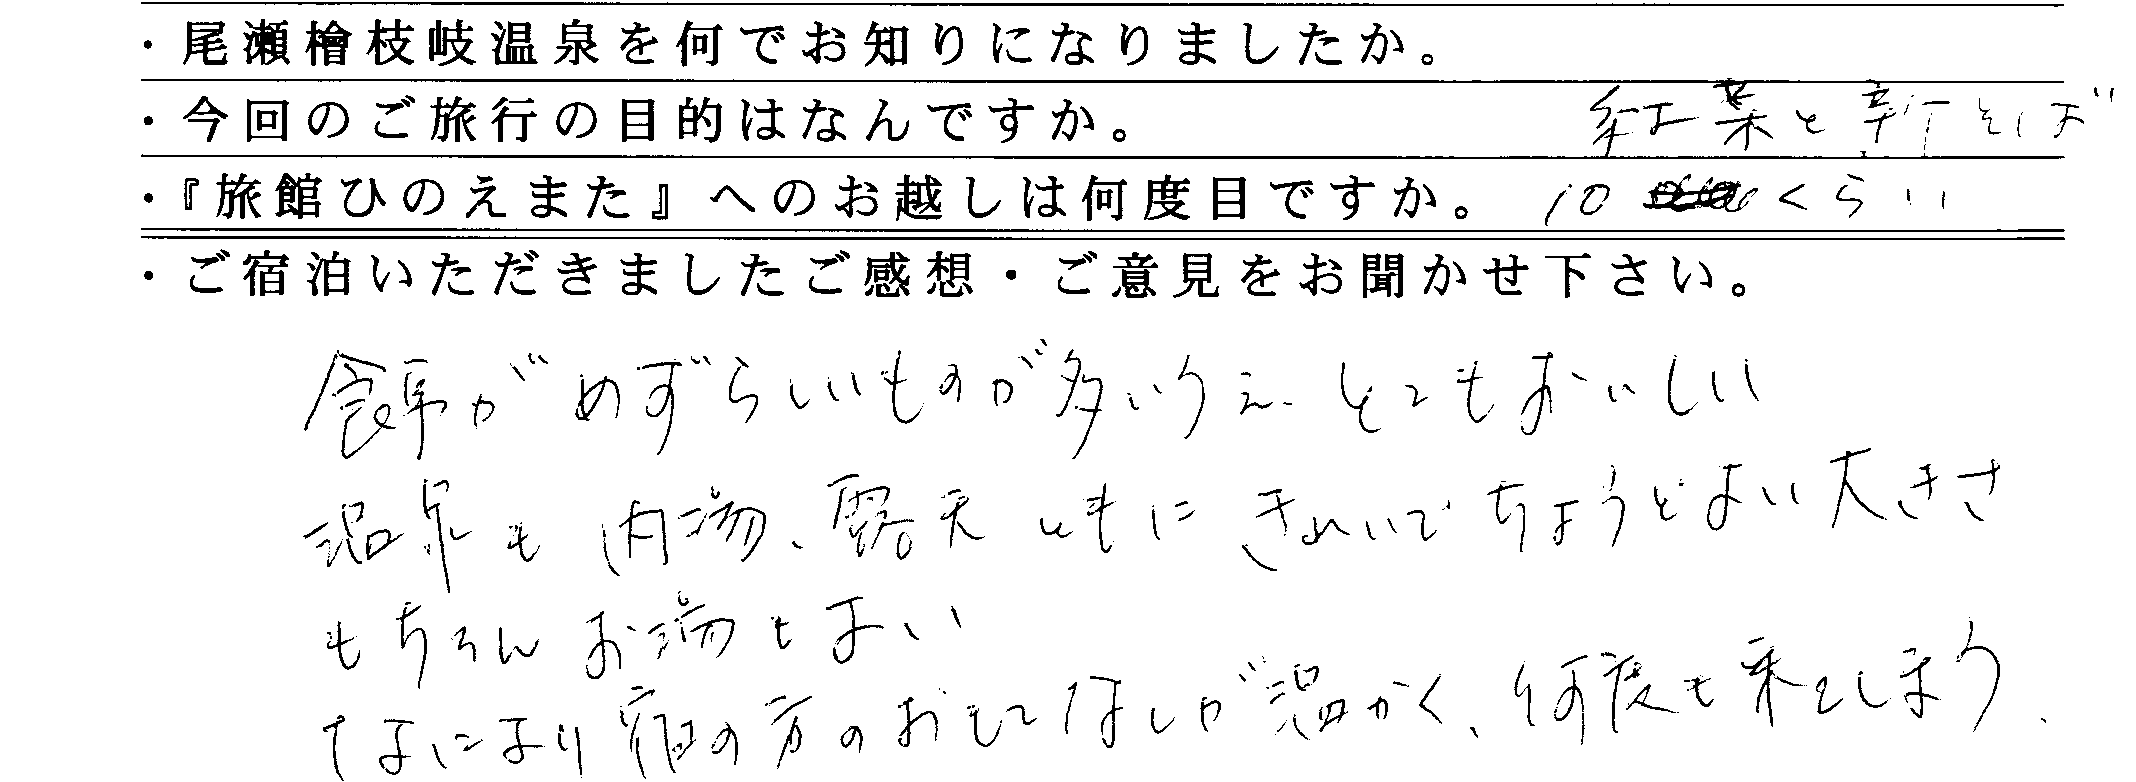 ・尾瀬檜枝岐温泉を何でお知りになりましたか。
・今回のご旅行の目的はなんですか。 紅葉と新そば
・『旅館ひのえまた』へのお越しは何度目ですか。 10 くらい
・ご宿泊いただきましたご感想・ご意見をお聞かせ下さい。
食事がめずらしいものが多いうえ、とてもおいしい
温泉も内湯、露天ともにきれいでちょうどよい大きさ
もちろんお湯もよい
なにより宿の方のおもてなしが温かく、何度も来てしまう。